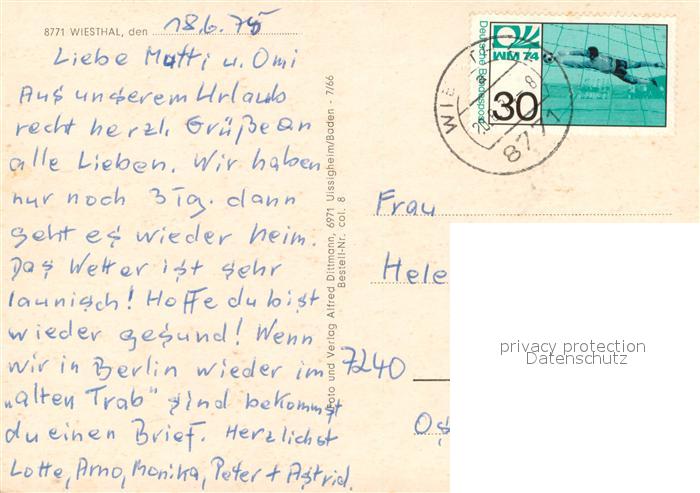 8771 WIESTHAL, den 18.6.75
Liebe Mutti u. Omi
Aus unserem Urlaub
recht herzl. Grüße an
alle Lieben. Wir haben
nur noch 3 Tg. dann
geht es wieder heim.
Das Wetter ist sehr
launisch! Hoffe du bist
wieder gesund! Wenn
wir in Berlin wieder im
„alten Trab" sind bekommst
du einen Brief. Herzlichst
Lotte, Arno, Monika, Peter + Astrid.
Foto und Verlag Alfred Dittmann, 6971 Uissigheim/Baden - 7/66
Bestell-Nr. col. 8
Deutsche Bundespost
WM 74
30
WIE
8771
Frau
Hele
7240
Os
privacy protection
Datenschutz